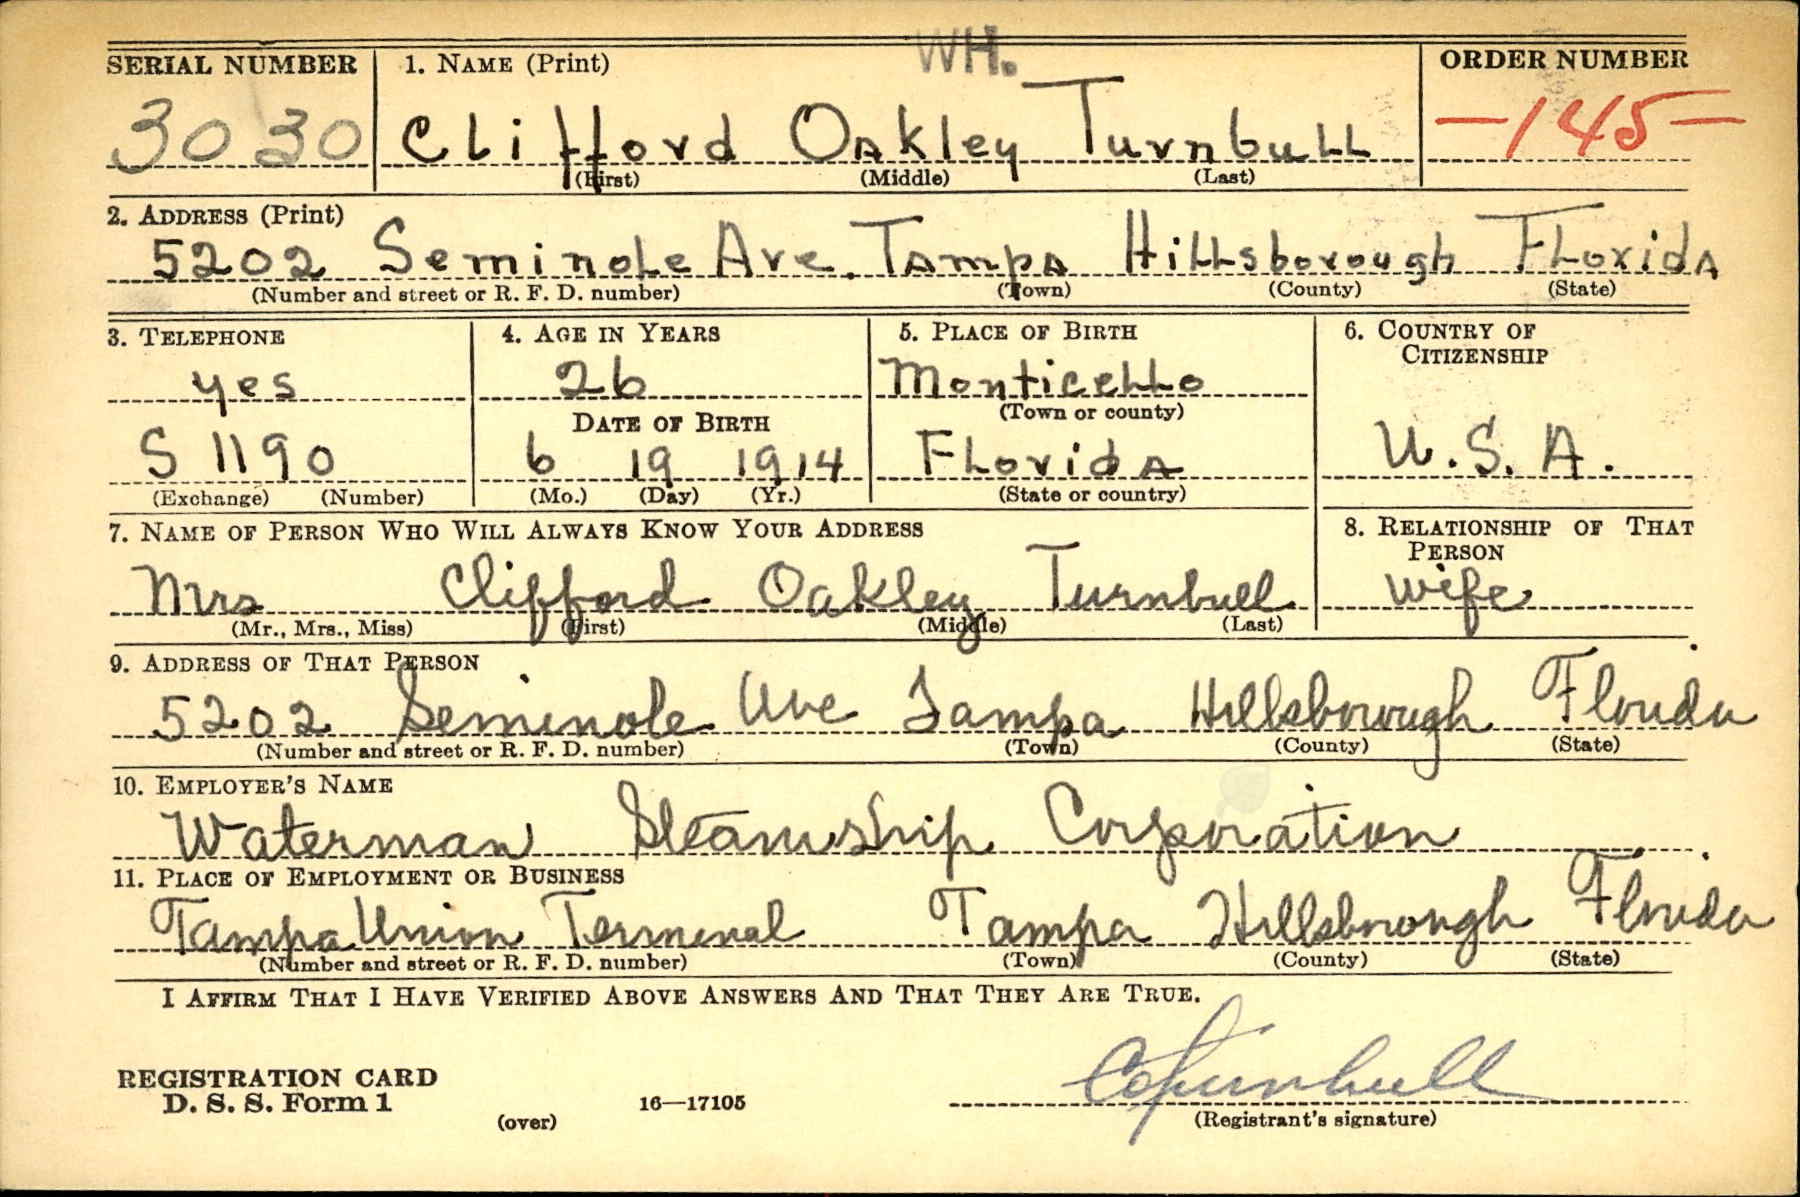 WH.
SERIAL NUMBER 1. NAME (Print) ORDER NUMBER
3030 Clifford Oakley Turnbull -145-
(First) (Middle) (Last)
2. ADDRESS (Print)
5202 Seminole Ave. Tampa Hillsborough Florida
(Number and street or R. F. D. number) (Town) (County) (State)
3. TELEPHONE 4. AGE IN YEARS 5. PLACE OF BIRTH 6. COUNTRY OF
CITIZENSHIP
yes 26 Monticello
DATE OF BIRTH (Town or county)
S 1190 6 19 1914 Florida U.S.A.
(Exchange) (Number) (Mo.) (Day) (Yr.) (State or country)
7. NAME OF PERSON WHO WILL ALWAYS KNOW YOUR ADDRESS 8. RELATIONSHIP OF THAT
PERSON
Mrs Clifford Oakley Turnbull wife
(Mr., Mrs., Miss) (First) (Middle) (Last)
9. ADDRESS OF THAT PERSON
5202 Seminole Ave Tampa Hillsborough Florida
(Number and street or R. F. D. number) (Town) (County) (State)
10. EMPLOYER'S NAME
Waterman Steamship Corporation
11. PLACE OF EMPLOYMENT OR BUSINESS
Tampa Union Terminal Tampa Hillsborough Florida
(Number and street or R. F. D. number) (Town) (County) (State)
I AFFIRM THAT I HAVE VERIFIED ABOVE ANSWERS AND THAT THEY ARE TRUE.
REGISTRATION CARD
D. S. S. Form 1
(over) 16—17105
COTurnbull
(Registrant's signature)